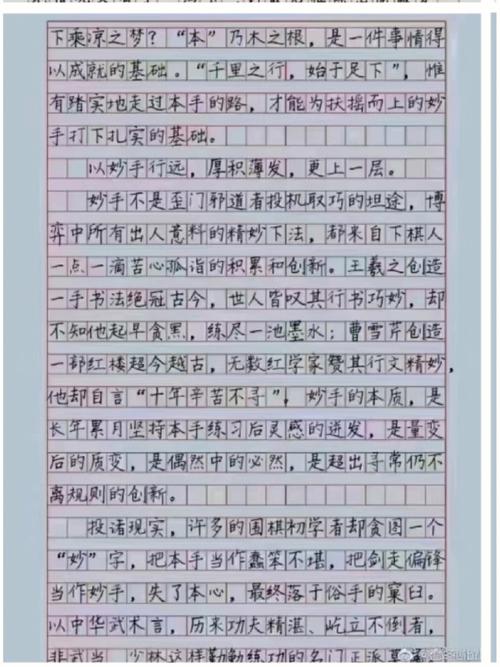 下乘凉之梦？“本”乃木之根，是一件事情得
以成就的基础。“千里之行，始于足下”，惟
有踏实地走过本手的路，才能为扶摇而上的妙
手打下扎实的基础。
以妙手行远，厚积薄发，更上一层。
妙手不是歪门邪道者投机取巧的坦途，博
弈中所有出人意料的精妙下法，都来自下棋人
一点一滴苦心孤诣的积累和创新。王羲之创造
一手书法绝冠古今，世人皆叹其行书巧妙，却
不知他起早贪黑，练尽一池墨水；曹雪芹创造
一部红楼超今越古，无数红学家赞其行文精妙，
他却自言“十年辛苦不寻”！妙手的本质，是
长年累月坚持本手练习后灵感的迸发，是量变
后的质变，是偶然中的必然，是超出寻常仍不
离规则的创新。
投诸现实，许多的围棋初学者却贪图一个
“妙”字，把本手当作蠢笨不堪，把剑走偏锋
当作妙手，失了本心，最终落于俗手的窠臼。
以中华武术言，历来功夫精湛、屹立不倒者，
非武当、少林这样勤勤练功的名门正派莫